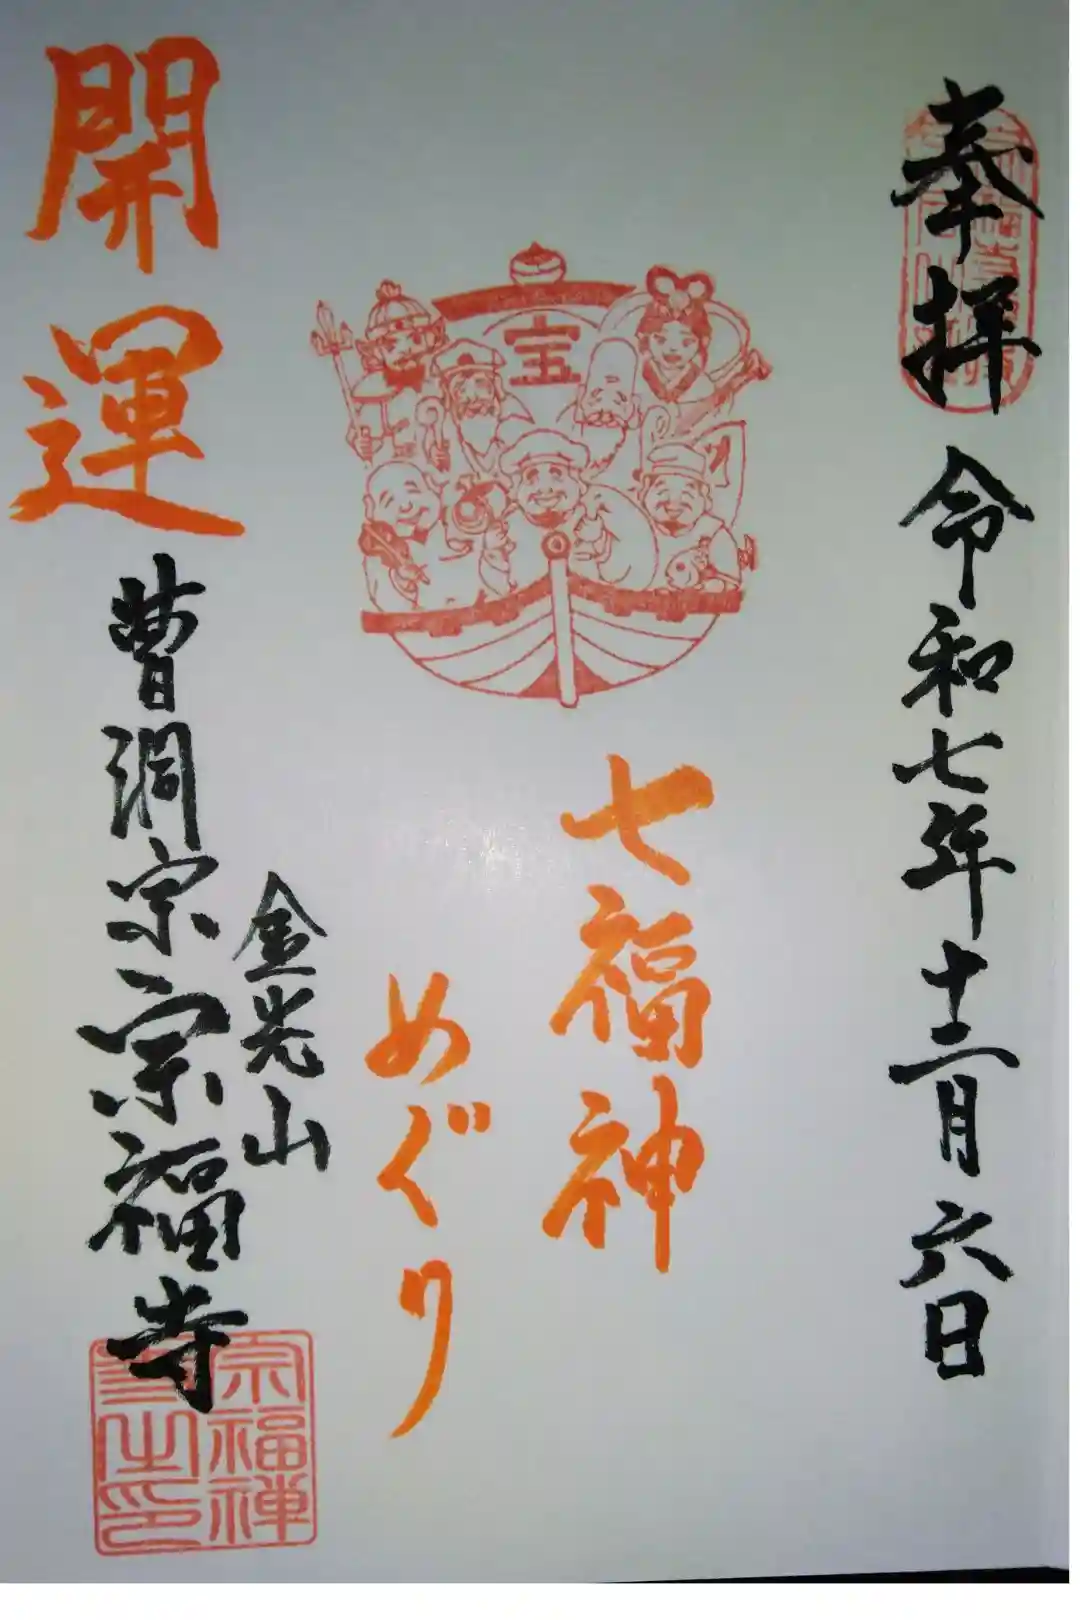 奉拝
令和七年十二月六日
宝
七福神
めぐり
開運
金光山
曹洞宗宗福寺
宗福禅
寺之印